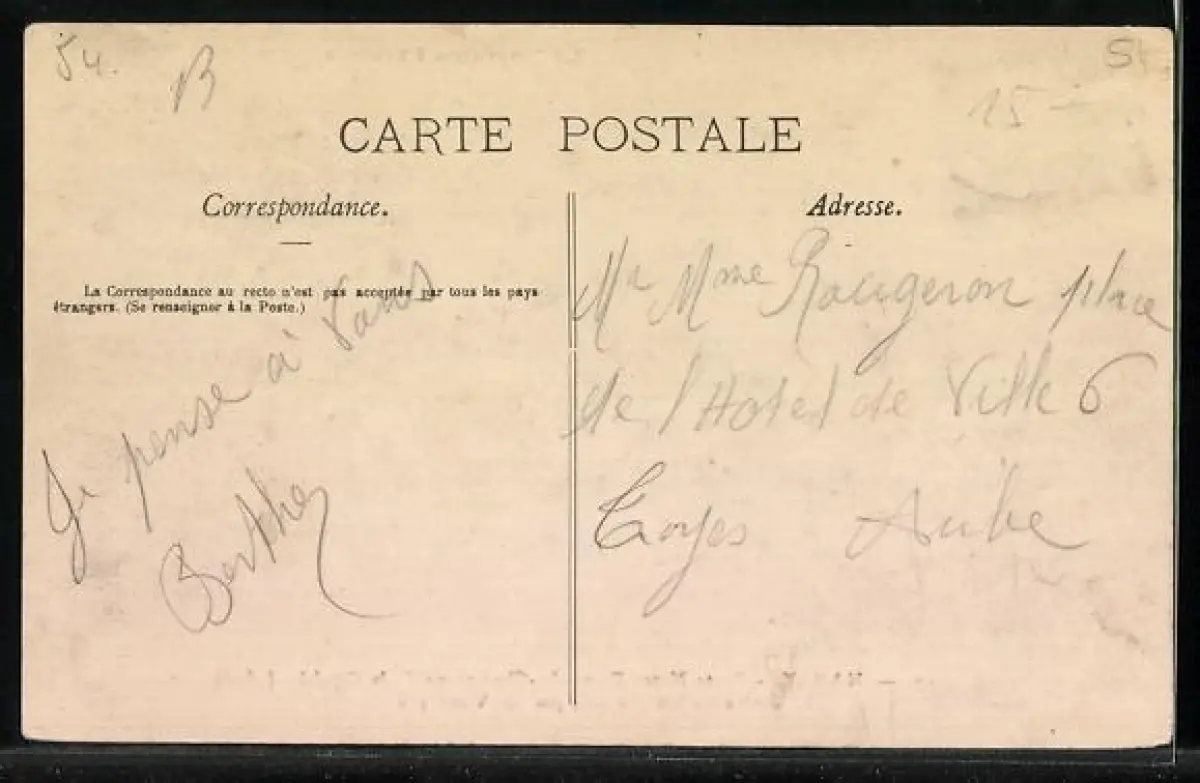 54.
B
54
15-
CARTE POSTALE
Correspondance.
Adresse.
La Correspondance au recto n'est pas acceptée par tous les pays
étrangers. (Se renseigner à la Poste.)
Je pense à Vous
Berthe
Mr Mme Rougeron place
de l'Hotel de Ville 6
Troyes Aube